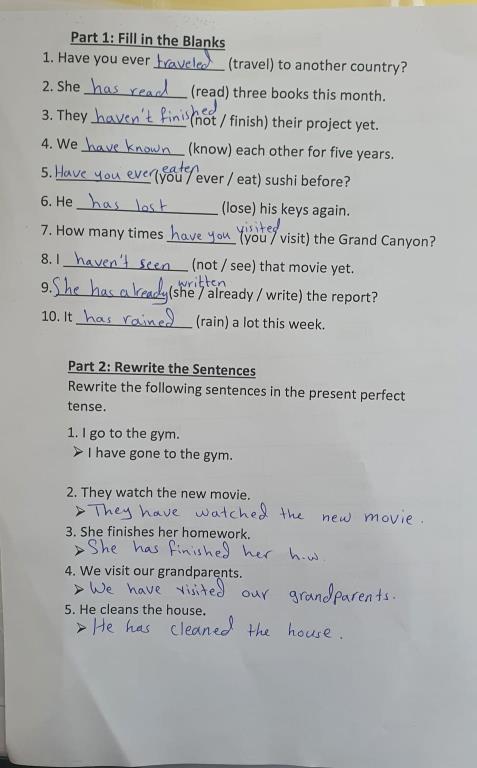 Part 1: Fill in the Blanks
1. Have you ever traveled (travel) to another country?
2. She has read (read) three books this month.
3. They haven't finished (not / finish) their project yet.
4. We have known (know) each other for five years.
5. Have you ever eaten (you / ever / eat) sushi before?
6. He has lost (lose) his keys again.
7. How many times have you visited (you / visit) the Grand Canyon?
8. I haven't seen (not / see) that movie yet.
9. She has already written (she / already / write) the report?
10. It has rained (rain) a lot this week.
Part 2: Rewrite the Sentences
Rewrite the following sentences in the present perfect
tense.
1. I go to the gym.
➢ I have gone to the gym.
2. They watch the new movie.
➢ They have watched the new movie.
3. She finishes her homework.
➢ She has finished her h.w.
4. We visit our grandparents.
➢ We have visited our grandparents.
5. He cleans the house.
➢ He has cleaned the house.